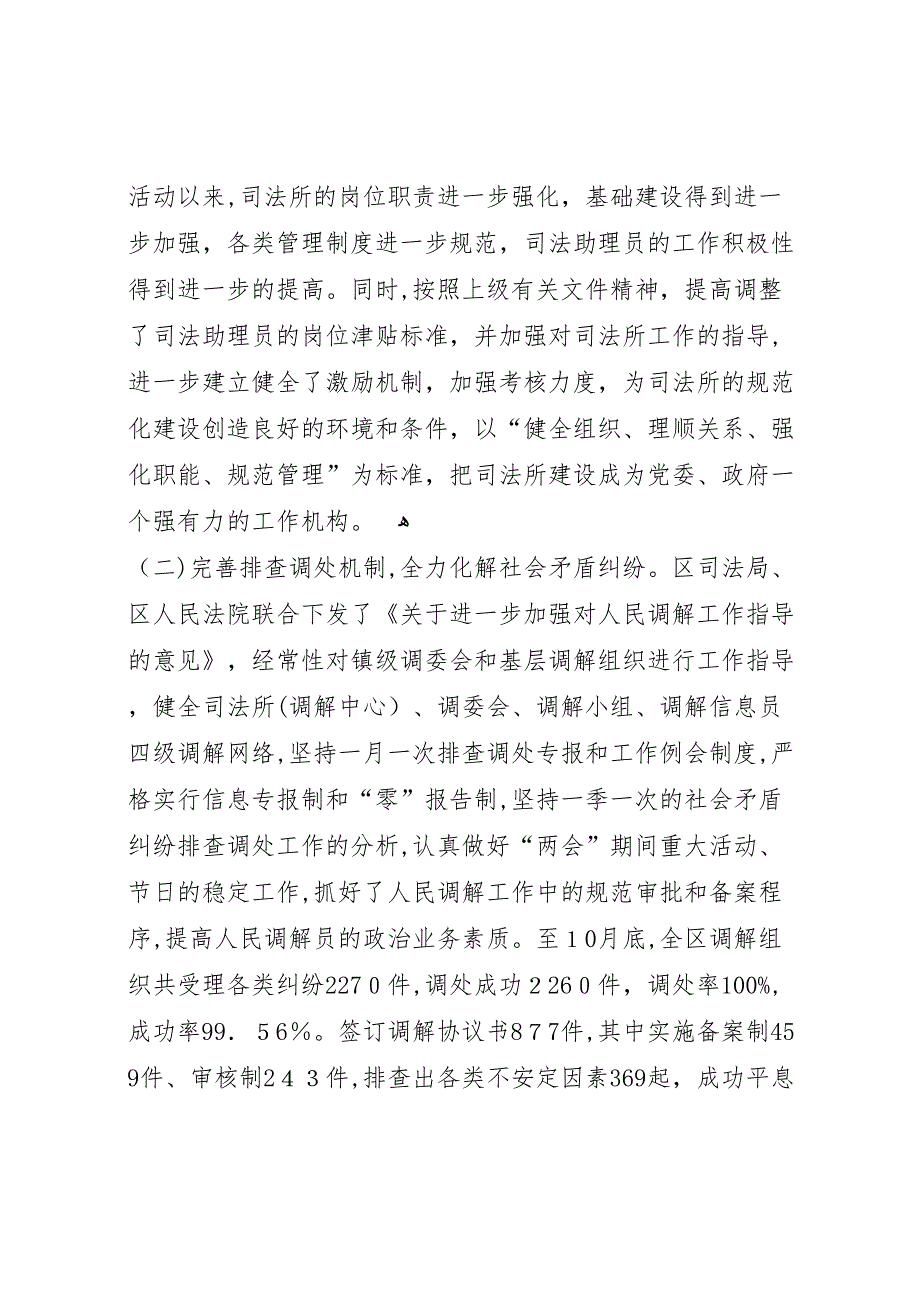 活动以来,司法所的岗位职责进一步强化，基础建设得到进一
步加强，各类管理制度进一步规范，司法助理员的工作积极性
得到进一步的提高。同时,按照上级有关文件精神，提高调整
了司法助理员的岗位津贴标准，并加强对司法所工作的指导,
进一步建立健全了激励机制，加强考核力度，为司法所的规范
化建设创造良好的环境和条件，以“健全组织、理顺关系、强
化职能、规范管理”为标准，把司法所建设成为党委、政府一
个强有力的工作机构。 ﻫ
（二)完善排查调处机制,全力化解社会矛盾纠纷。区司法局、
区人民法院联合下发了《关于进一步加强对人民调解工作指导
的意见》，经常性对镇级调委会和基层调解组织进行工作指导
，健全司法所(调解中心）、调委会、调解小组、调解信息员
四级调解网络,坚持一月一次排查调处专报和工作例会制度,严
格实行信息专报制和“零”报告制,坚持一季一次的社会矛盾
纠纷排查调处工作的分析,认真做好“两会”期间重大活动、
节日的稳定工作,抓好了人民调解工作中的规范审批和备案程
序,提高人民调解员的政治业务素质。至１0月底,全区调解组
织共受理各类纠纷227０件,调处成功２26０件，调处率100%,
成功率99．５6％。签订调解协议书8７7件,其中实施备案制45
9件、审核制2４３件,排查出各类不安定因素369起，成功平息